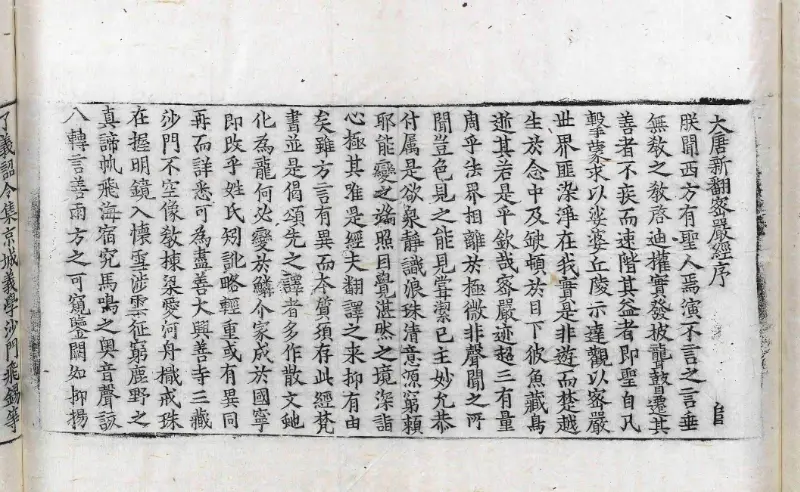 大唐新翻密嚴經序 自
朕聞西方有聖人焉演不言之言垂
無教之教啓迪權實發披聾瞽遷其
善者不疾而速階其益者即聖自凡
擊蒙求以娑婆丘陵示達觀以密嚴
世界匪染淨在我實是非遊而楚越
生於念中及缺頓於目下彼魚藏鳥
逝其若是乎欽哉密嚴迹超三有量
周乎法界相離於極微非聲聞之所
聞豈色見之能見嘗潔己主妙允恭
付属是欲泉靜識浪珠清意源窮賴
耶能變之端照自覺湛然之境深詣
心極其唯是經夫翻譯之來抑有由
矣雖方言有異而本質須存此經梵
書並是偈頌先之譯者多作散文虵
化為龍何必變於鱗介家成於國寧
即改乎姓氏矧訛略輕重或有異同
再而詳悉可為盡善大興善寺三藏
沙門不空像教棟梁愛河舟檝戒珠
在握明鏡入懷雪涉雲征窮鹿野之
真諦帆飛海宿究馬鳴之奧音聲該
八轉言善兩方之可窺鑒闕如抑揚
了義詔令集京城義學沙門飛錫等